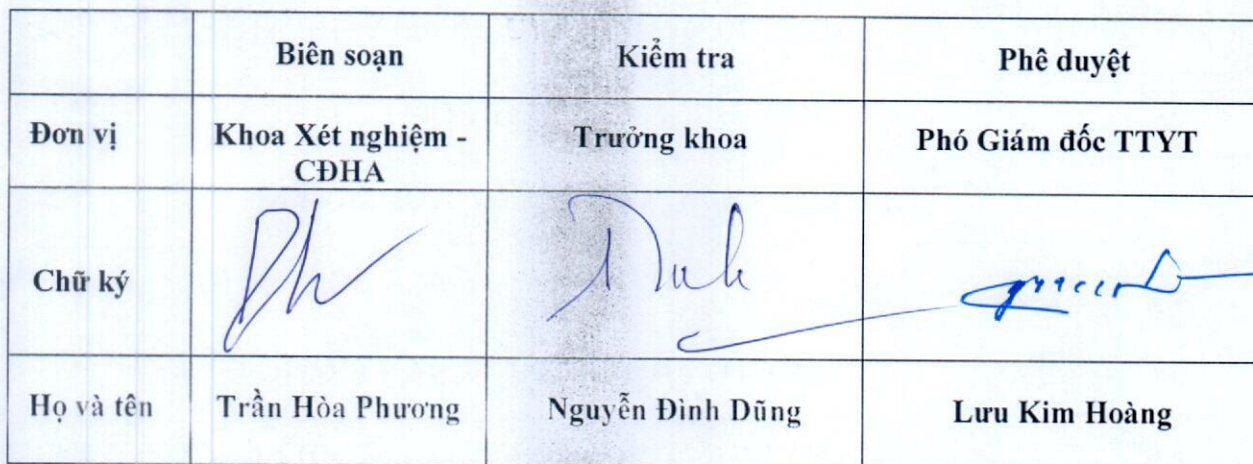 Biên soạn Kiểm tra Phê duyệt
Đơn vị Khoa Xét nghiệm - Trưởng khoa Phó Giám đốc TTYT
CĐHA
Chữ ký
Họ và tên Trần Hòa Phương Nguyễn Đình Dũng Lưu Kim Hoàng